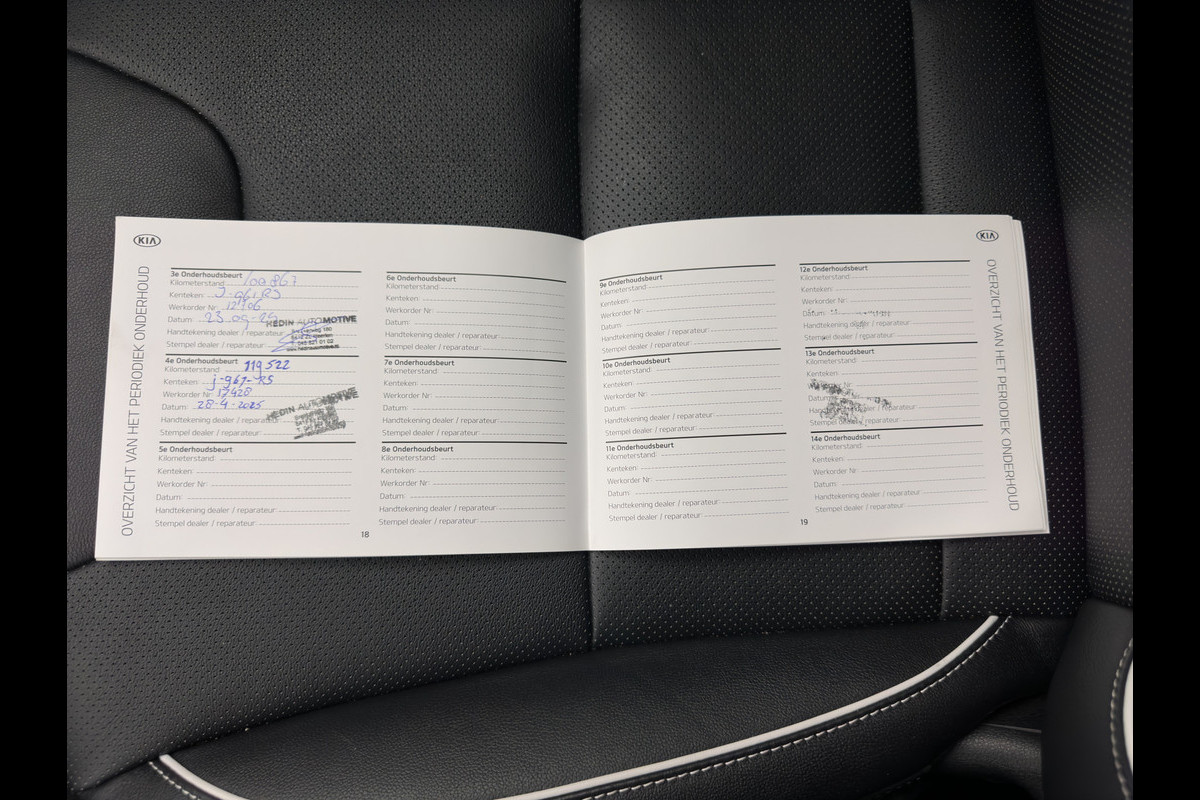 KIA
OVERZICHT VAN HET PERIODIEK ONDERHOUD
3e Onderhoudsbeurt
Kilometerstand: 100867
Kenteken: J-961-RS
Werkorder Nr: 12706
Datum: 23.09.24
HEDIN AUTOMOTIVE
Handtekening dealer / reparateur:
Stempel dealer / reparateur:
4e Onderhoudsbeurt
Kilometerstand: 119522
Kenteken: J-961-RS
Werkorder Nr: 17428
Datum: 28-4-2025
HEDIN AUTOMOTIVE
Handtekening dealer / reparateur:
Stempel dealer / reparateur:
5e Onderhoudsbeurt
Kilometerstand:
Kenteken:
Werkorder Nr:
Datum:
Handtekening dealer / reparateur:
Stempel dealer / reparateur:
6e Onderhoudsbeurt
Kilometerstand:
Kenteken:
Werkorder Nr:
Datum:
Handtekening dealer / reparateur:
Stempel dealer / reparateur:
7e Onderhoudsbeurt
Kilometerstand:
Kenteken:
Werkorder Nr:
Datum:
Handtekening dealer / reparateur:
Stempel dealer / reparateur:
8e Onderhoudsbeurt
Kilometerstand:
Kenteken:
Werkorder Nr:
Datum:
Handtekening dealer / reparateur:
Stempel dealer / reparateur:
18
9e Onderhoudsbeurt
Kilometerstand:
Kenteken:
Werkorder Nr:
Datum:
Handtekening dealer / reparateur:
Stempel dealer / reparateur:
10e Onderhoudsbeurt
Kilometerstand:
Kenteken:
Werkorder Nr:
Datum:
Handtekening dealer / reparateur:
Stempel dealer / reparateur:
11e Onderhoudsbeurt
Kilometerstand:
Kenteken:
Werkorder Nr:
Datum:
Handtekening dealer / reparateur:
Stempel dealer / reparateur:
12e Onderhoudsbeurt
Kilometerstand:
Kenteken:
Werkorder Nr:
Datum:
Handtekening dealer / reparateur:
Stempel dealer / reparateur:
13e Onderhoudsbeurt
Kilometerstand:
Kenteken:
Werkorder Nr:
Datum:
Handtekening dealer / reparateur:
Stempel dealer / reparateur:
14e Onderhoudsbeurt
Kilometerstand:
Kenteken:
Werkorder Nr:
Datum:
Handtekening dealer / reparateur:
Stempel dealer / reparateur:
19
KIA
OVERZICHT VAN HET PERIODIEK ONDERHOUD